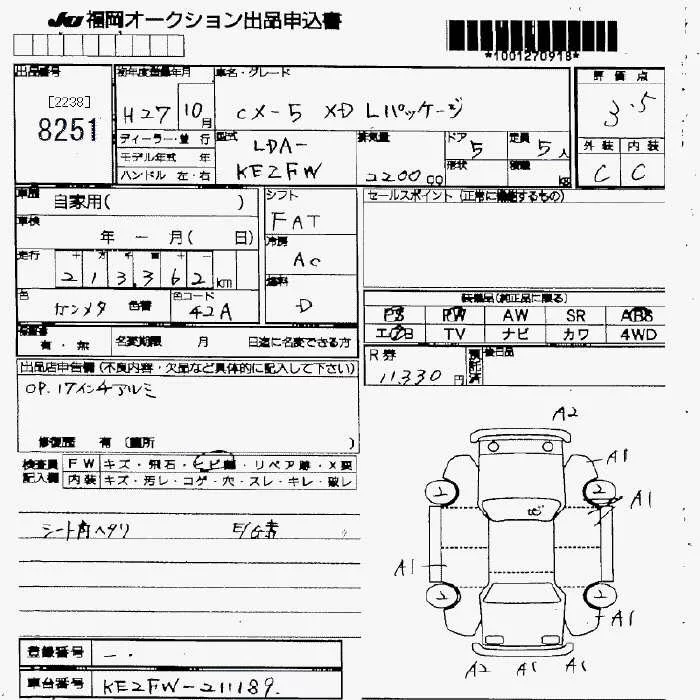 JU 福岡オークション出品申込書
*1001270918*
出品番号
[2238]
8251
初年度登録年月
H27 10月
ディーラー・並行
モデル年式 年
ハンドル 左・右
車名・グレード
CX-5 XD Lパッケージ
型式
LDA-
KE2FW
排気量
2200cc
ドア 5
形状
定員 5人
積載 kg
評価点
3.5
外装 内装
C C
車歴
自家用( )
車検
年 - 月( 日)
走行
十 万 千 百 十 一
213362km
色
ガンメタ
色替
色コード
42A
シフト
FAT
冷房
AC
燃料
D
セールスポイント(正常に機能するもの)
装備品(純正品に限る)
PS PW AW SR ABS
エアB TV ナビ カワ 4WD
有・無 名変期限 月 日迄に名変できる方
R券
11,330円
預託済
後日品
出品店申告欄(不良内容・欠品など具体的に記入して下さい)
OP.17インチアルミ
修復歴 有〔箇所 〕
検査員
記入欄
FW キズ・飛石・ヒビ・リペア跡・X要
内装 キズ・汚レ・コゲ・穴・スレ・キレ・破レ
A2
A1
2 2
A1
ヒビ
A1
2 2
A1
A2 A1 A1
登録番号
-.
車台番号
KE2FW-211189.